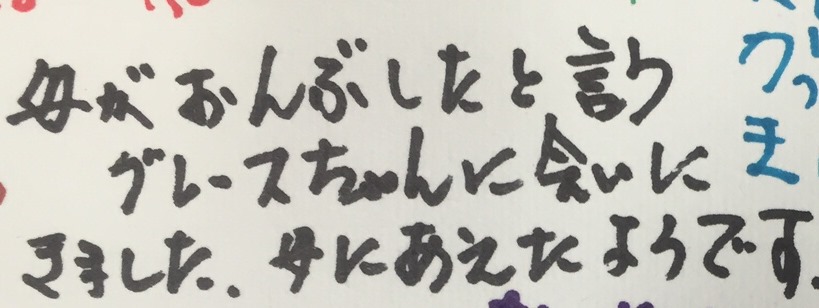 母がおんぶしたと言う
グレースちゃんに会いに
きました。母にあえたようです.